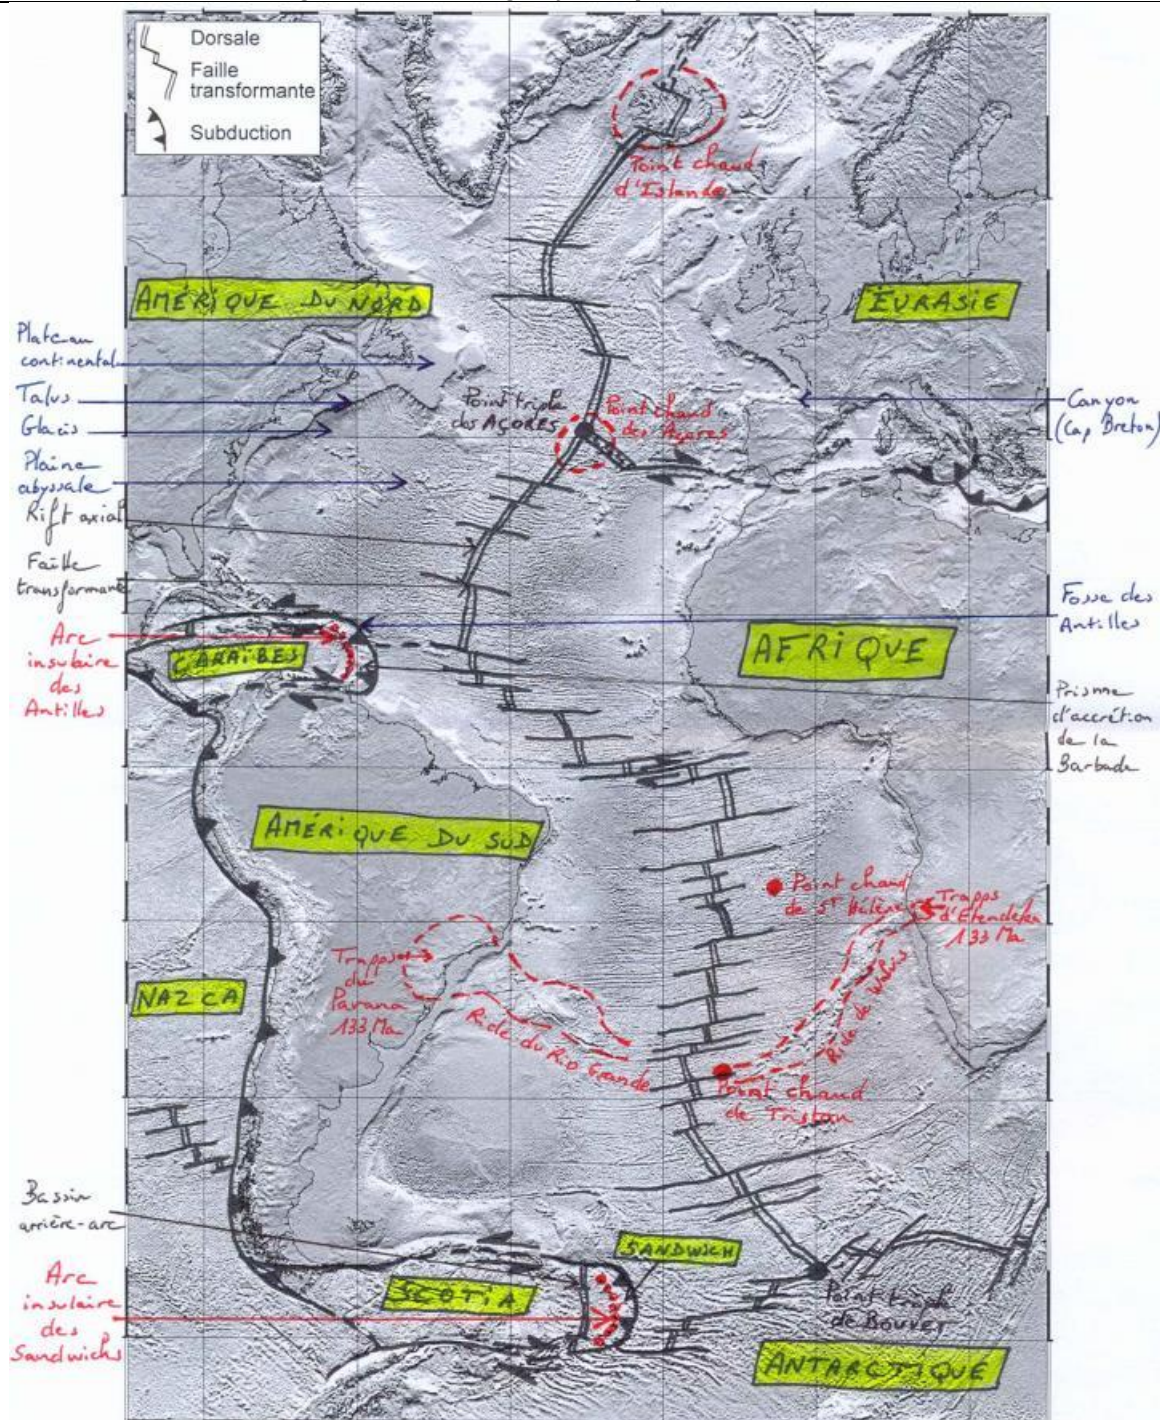 Dorsale
Faille
transformante
Subduction
Point chaud
d'Islande
AMÉRIQUE DU NORD
EURASIE
Plateau
continental
Talus
Glacis
Plaine
abyssale
Rift axial
Faille
transformante
Arc
insulaire
des
Antilles
Point triple
des AÇORES
Point chaud
des Açores
Canyon
(Cap Breton)
Fosse des
Antilles
CARAÏBES
AFRIQUE
Prisme
d'accrétion
de la
Barbade
AMÉRIQUE DU SUD
Point chaud
de St Hélène
Trapps
d'Etendeka
133 Ma
Trapps
du
Parana
133 Ma
NAZCA
Ride du Rio Grande
Ride de Walvis
Point chaud
de Tristan
Bassin
arrière-arc
SANDWICH
SCOTIA
Arc
insulaire
des
Sandwichs
Point triple
de BOUVET
ANTARCTIQUE